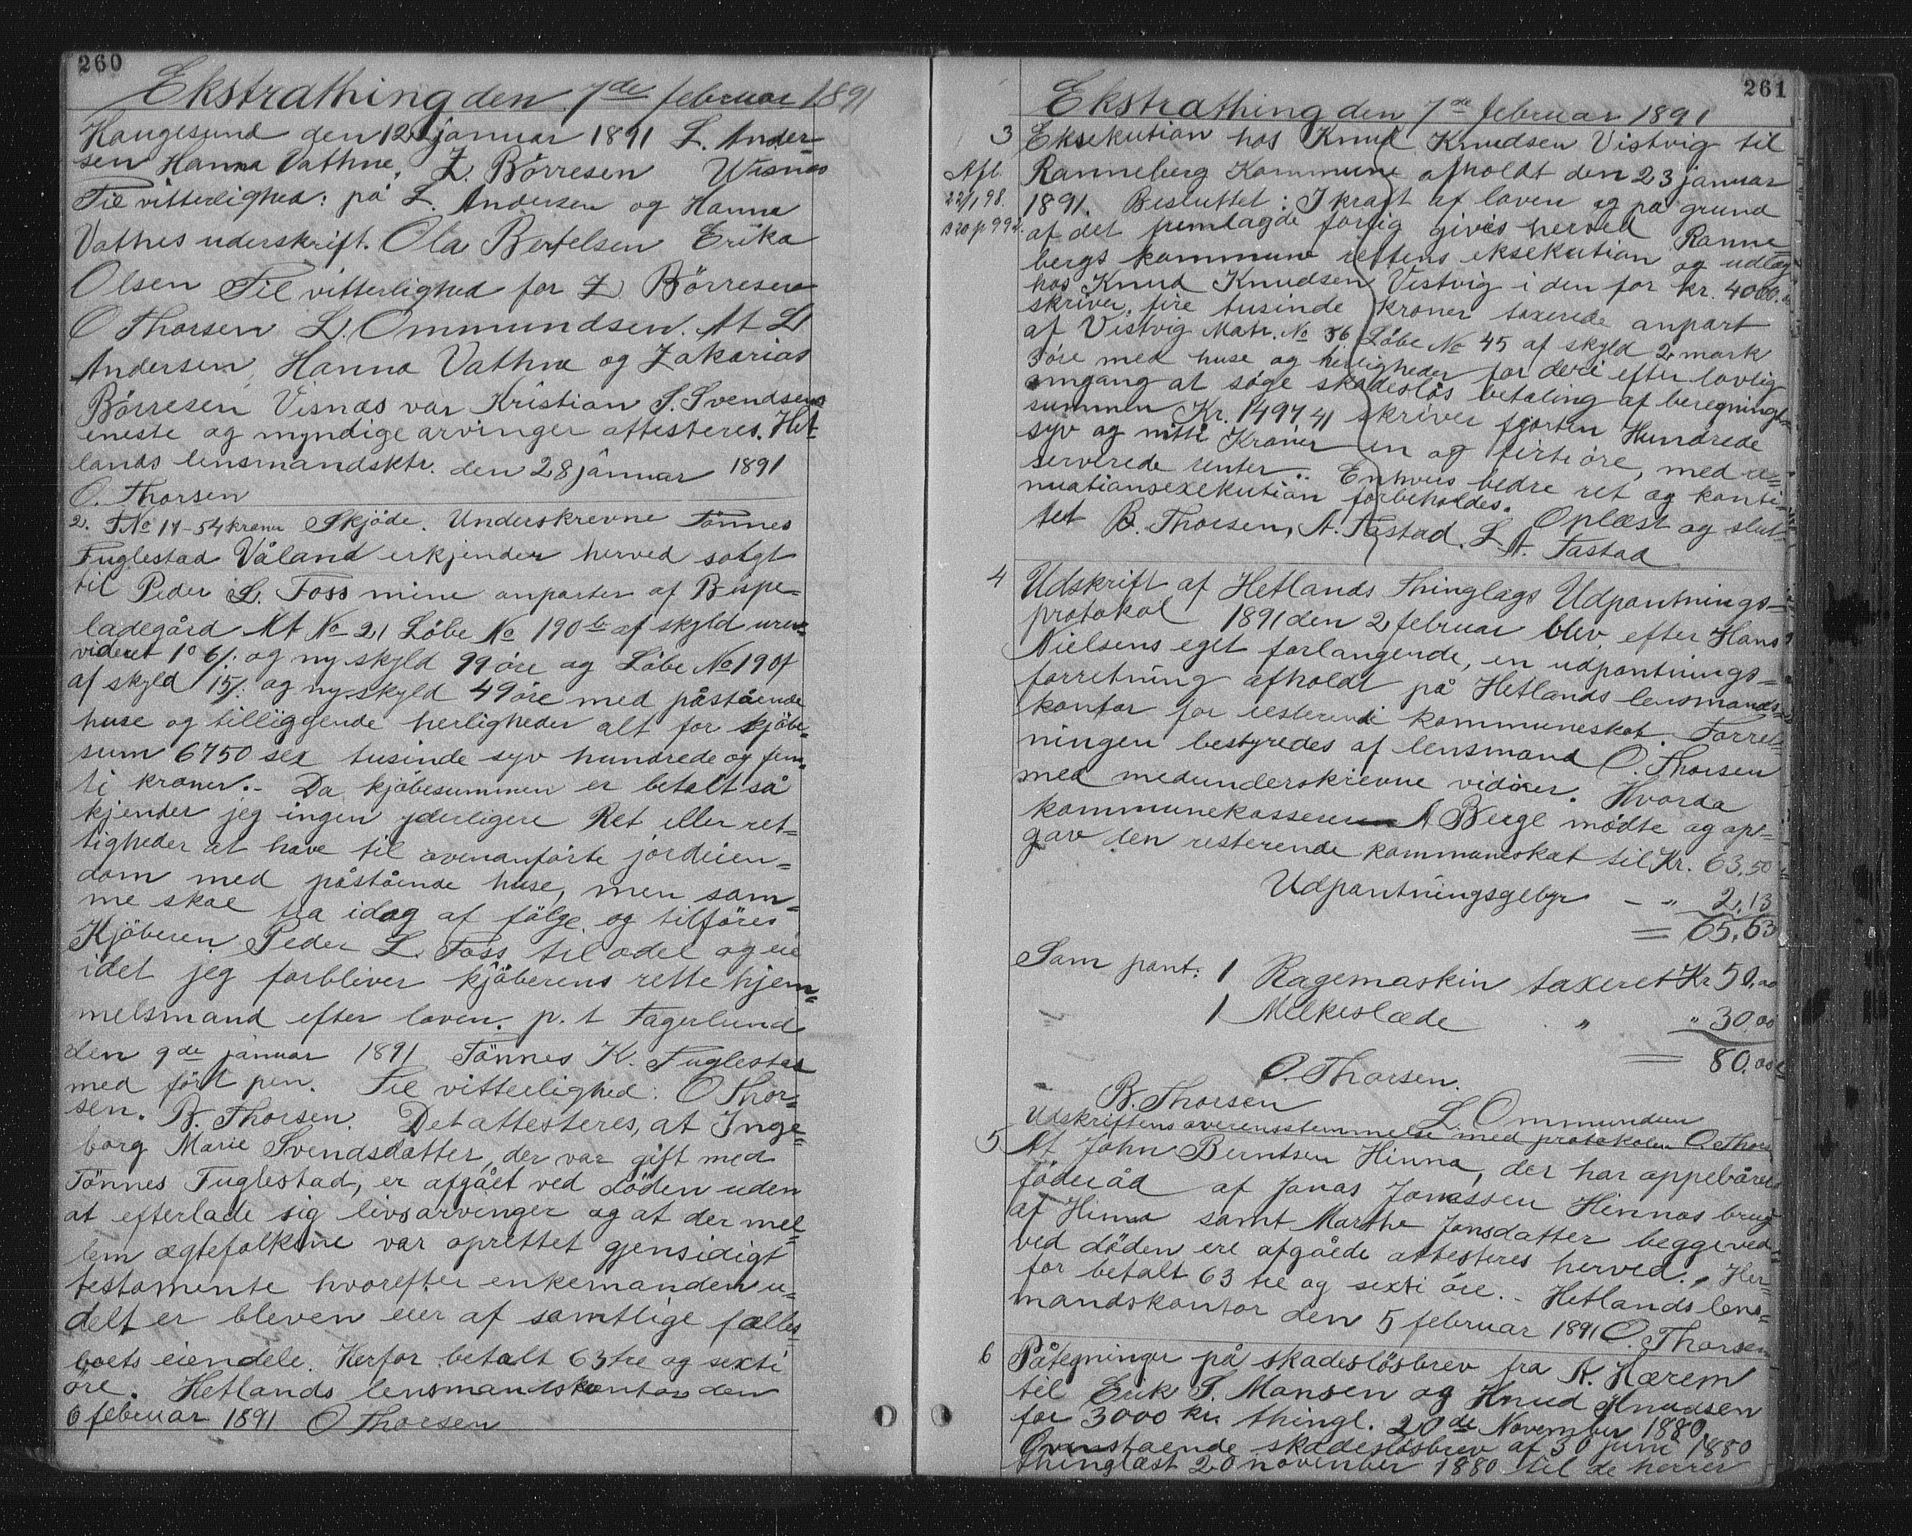 260
Ekstrathing den 7de februar 1891
Haugesund den 12 januar 1891 L. Ander-
sen Hanna Vathne, Z. Börresen Visnes
Til vitterlighed: på L. Andersen og Hanna
Vathnes uderskrift. Ola Bertelsen Erika
Olsen Til vitterlighed for Z Börresen
O Thorsen L. Ommundsen. At L
Andersen, Hanna Vathne og Zakarias
Börresen Visnæs var Kristian S. Svendsens
eneste og myndige arvinger attesteres. Het-
lands lensmandsktr. den 28 januar 1891
O. Thorsen
2. No 17 - 54 kroner Skjöde. Underskrevne Tönnes
Fuglestad Våland erkjender herved solgt
til Peder L. Foss mine anparter af Bispe-
ladegård Mt No 21 Löbe No 190 b af skyld urev-
videret 1 o 6/: og ny skyld 99 öre og Löbe No 190f
af skyld 15/: og ny skyld 49 öre med påstående
huse og tilliggende herligheder alt for kjöbe-
sum 6750 sex tusinde syv hundrede og fem-
ti kroner. - Da kjöbesummen er betalt så
kjender jeg ingen yderligere Ret eller ret-
tigheder at have til ovenanförte jordeien-
dom med påstående huse, men sam-
me skal fra idag af fölge og tilföres
Kjöberen Peder L. Foss til odel og eie
idet jeg forbliver kjöberens rette hjem-
melsmand efter loven. p. t Fagerlund
den 9de januar 1891 Tönnes K. Fuglestad
med fört pen. Til vitterlighed: O Thor-
sen. B. Thorsen. Det attesteres, at Inge-
borg Marie Svendsdatter, der var gift med
Tönnes Fuglestad, er afgået ved döden uden
at efterlade sig livsarvinger og at der mel-
lem ægtefolkene var oprettet gjensidigt
testamente hvorefter enkemanden u-
delt er bleven eier af samtlige fælles-
boets eiendele. Herfor betalt 63 tre og sexti
öre. Hetlands lensmandskontor den
6 februar 1891 O Thorsen
261
Ekstrathing den 7de februar 1891
3 Eksekution hos Knud Knudsen Vistvig til
Afl. Ranneberg Kommune afholdt den 23 januar
22/1 98. 1891. Besluttet: I kraft af loven og på grund
B 20 p 992. af det fremlagde forlig gives herved Ranne
bergs kommune rettens eksekution og udlæg
hos Knud Knudsen Vistvig i den for kr. 4000.
skriver fire tusinde kroner taxerede anpart
af Vistvig Matr. No 56 Löbe No 45 af skyld 2 mark
öre med huse og herligheder for deri efter lovlig
omgang at söge skadeslös betaling af beregnings-
summen Kr. 1497 41 skriver fjorten Hundrede
syv og nitti Kroner en og firti öre, med re-
serverede renter. Enhvers bedre ret og konti-
nuationsexekution forbeholdes. Oplæst og slut-
tet B. Thorsen, A. Tastad. L. A. Tastad
4 Udskrift af Hetlands Thinglags Udpantnings-
protokol 1891 den 2 februar blev efter Hans
Nielsens eget forlangende, en udpantnings-
forretning afholdt på Hetlands lensmands-
kontor for resterende kommuneskat. Forret-
ningen bestyredes af lensmand O. Thorsen
med medunderskrevne vidner. Hvorda
kommunekasserer A Berge mödte og op-
gav den resterende kommuneskat til Kr. 63,50
Udpantningsgebyr - " 2,13
= 65,63
Som pant: 1 Ragemaskin taxeret Kr 50,00
1 Melkeslæde " " 30,00
= 80,00
O. Thorsen.
B. Thorsen L. Ommundsen
Udskriftens overensstemmelse med protokolen O. Thorsen
5 At John Berntsen Hinna, der har oppebåret
föderåd af Jonas Jonassen Hinnas brug
af Hinna samt Marthe Jonsdatter begge ved
ved döden ere afgåede attesteres herved. Her-
for betalt 63 tre og sexti öre. - Hetlands lens-
mandskontor den 5 februar 1891 O. Thorsen
6 Påtegninger på skadeslösbrev fra A. Hærem
til Erik S. Monsen og Knud Knudsen
for 3000 kr. thingl. 20de November 1880.
Ovenstaende skadeslösbrev af 30 juni 1880
thinglæst 20 november 1880 til de herrer